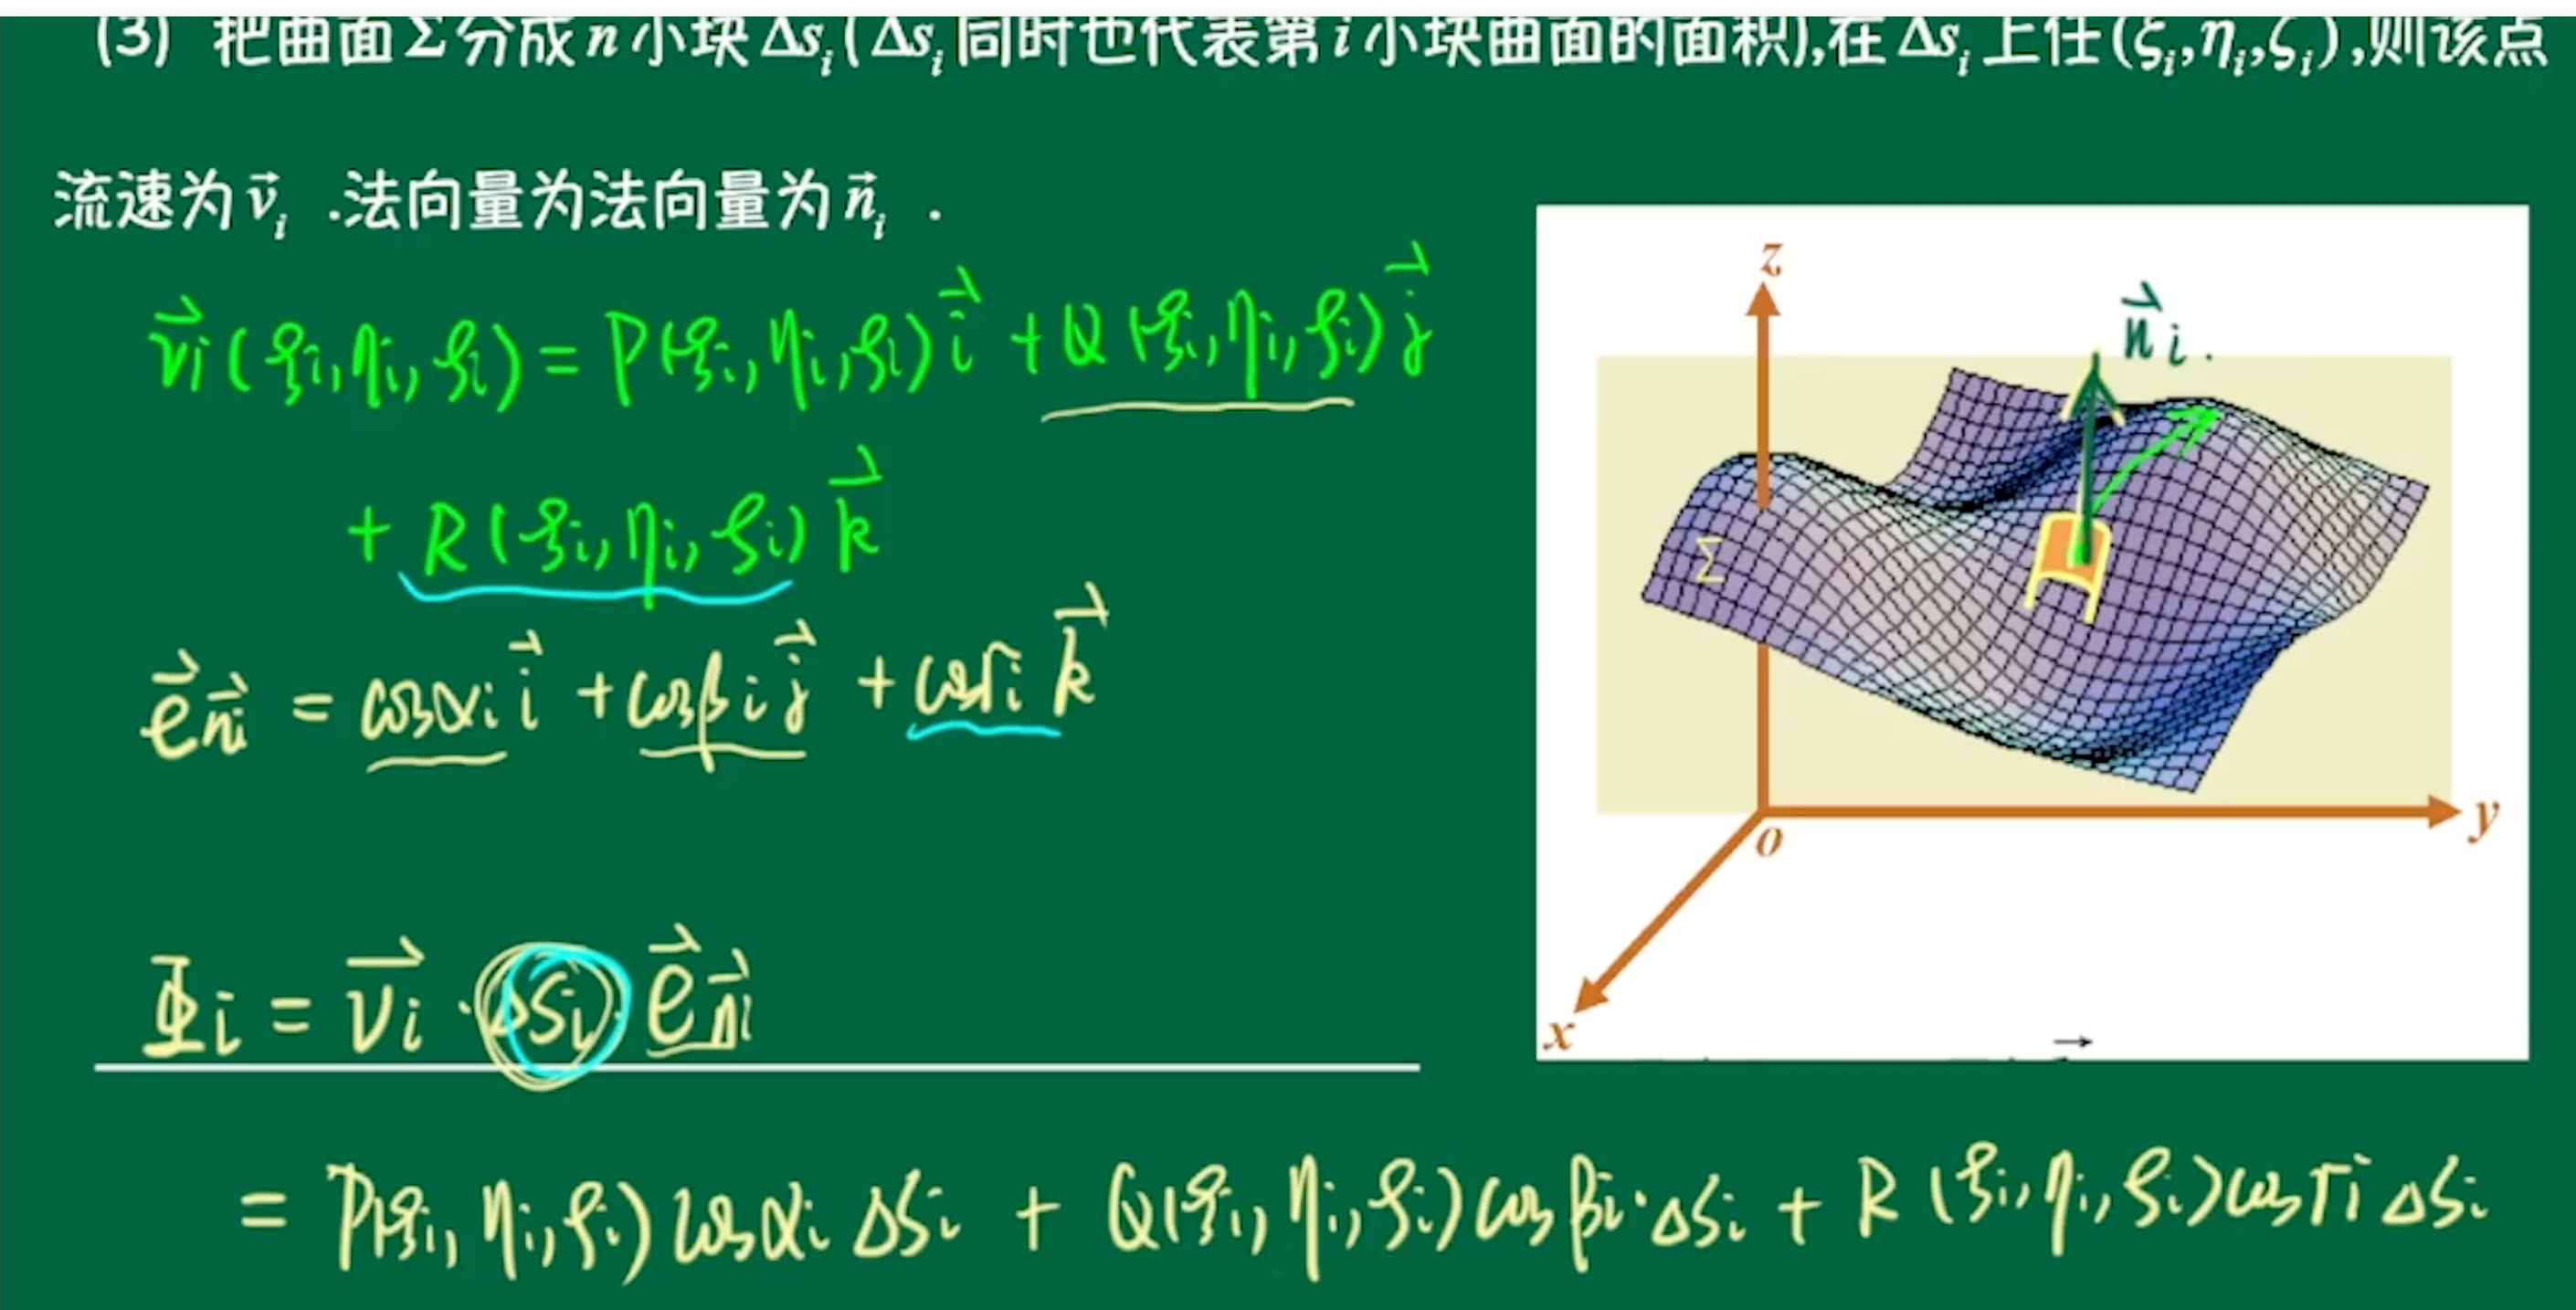 (3) 把曲面Σ分成n小块Δsᵢ(Δsᵢ同时也代表第i小块曲面的面积),在Δsᵢ上任(ξᵢ,ηᵢ,ζᵢ),则该点
流速为v⃗ᵢ .法向量为法向量为n⃗ᵢ .
v⃗ᵢ(ξᵢ,ηᵢ,ζᵢ)=P(ξᵢ,ηᵢ,ζᵢ)i⃗+Q(ξᵢ,ηᵢ,ζᵢ)j⃗
+R(ξᵢ,ηᵢ,ζᵢ)k⃗
e⃗n⃗ᵢ = cosαᵢi⃗+cosβᵢj⃗+cosγᵢk⃗
Φᵢ = v⃗ᵢ·ΔSᵢ·e⃗n⃗ᵢ
= P(ξᵢ,ηᵢ,ζᵢ)cosαᵢΔSᵢ + Q(ξᵢ,ηᵢ,ζᵢ)cosβᵢ·ΔSᵢ + R(ξᵢ,ηᵢ,ζᵢ)cosγᵢΔSᵢ
z
n⃗ᵢ.
Σ
y
o
x